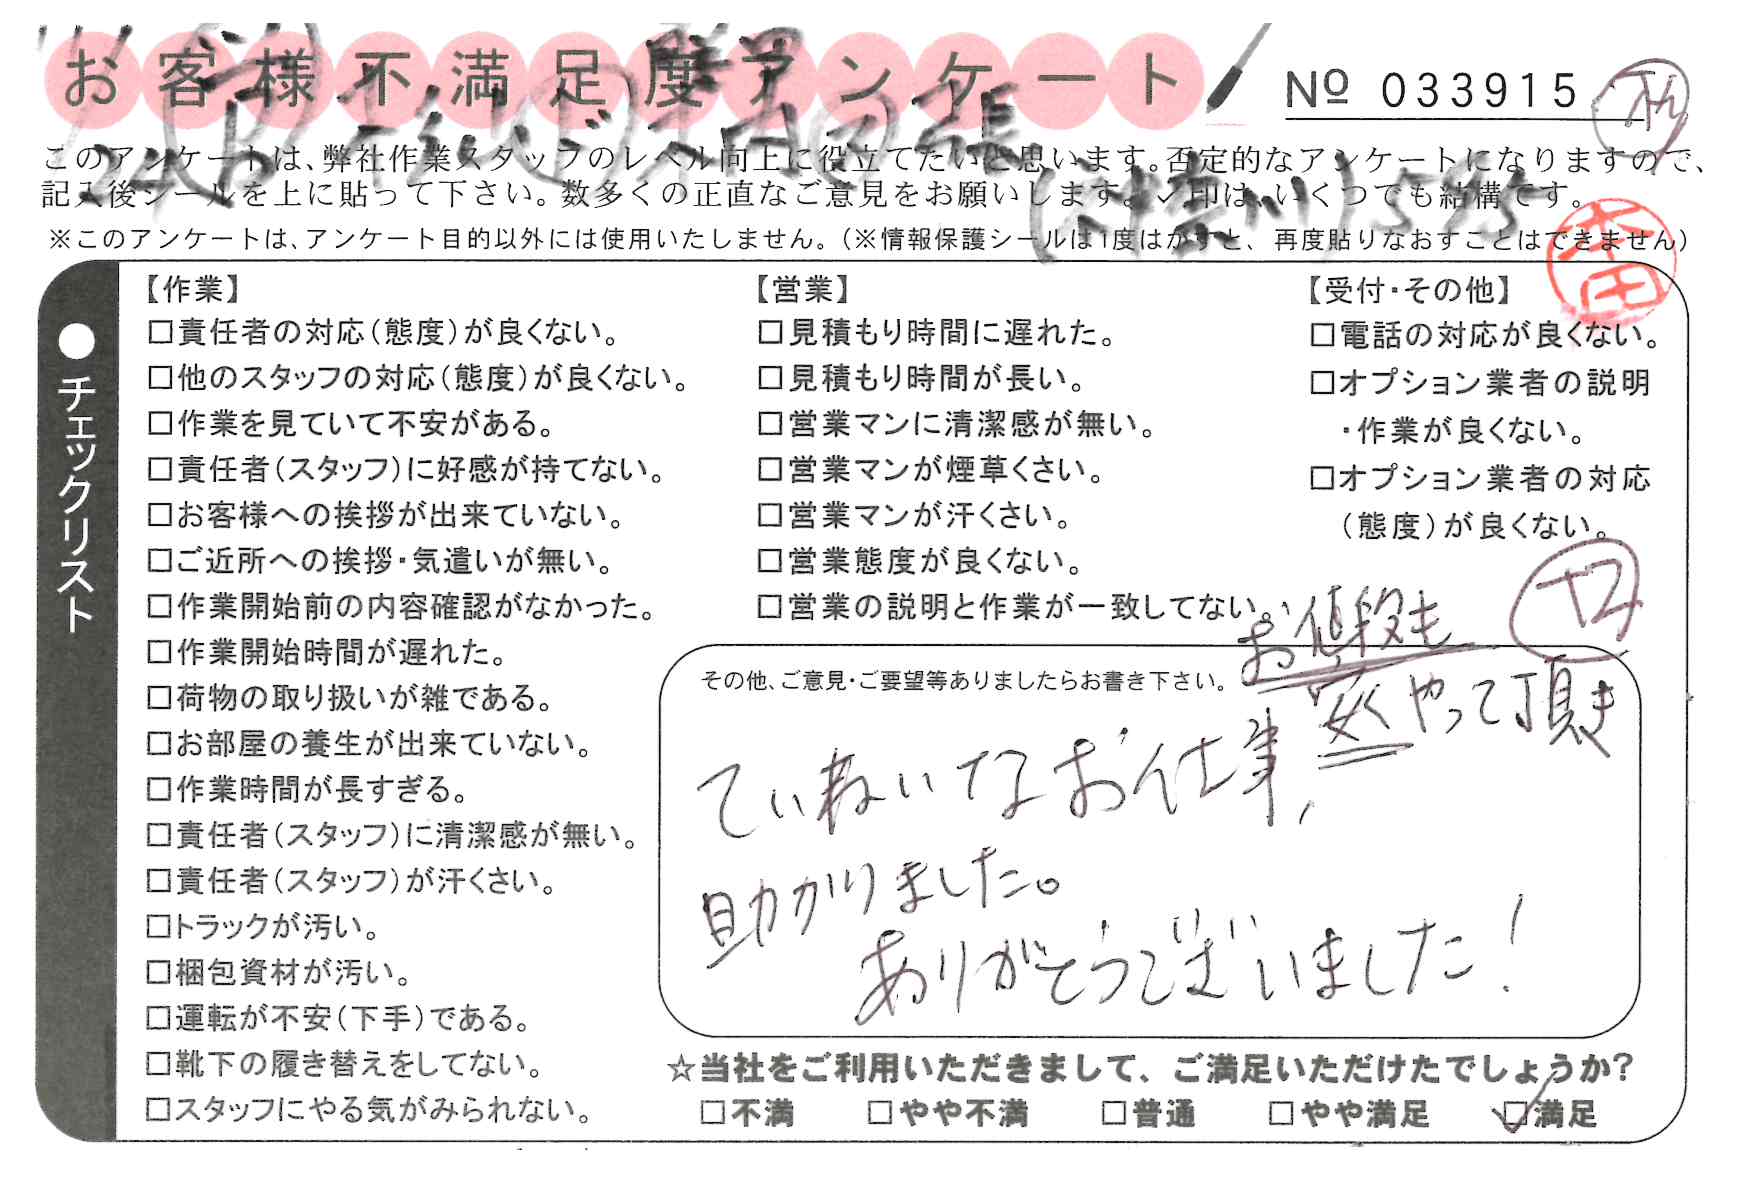 お客様不満足度アンケート
№ 033915
このアンケートは、弊社作業スタッフのレベル向上に役立てたいと思います。否定的なアンケートになりますので、
記入後シールを上に貼って下さい。数多くの正直なご意見をお願いします。✓印は、いくつでも結構です。
※このアンケートは、アンケート目的以外には使用いたしません。（※情報保護シールは1度はがすと、再度貼りなおすことはできません）
本田
●チェックリスト
【作業】
□責任者の対応（態度）が良くない。
□他のスタッフの対応（態度）が良くない。
□作業を見ていて不安がある。
□責任者（スタッフ）に好感が持てない。
□お客様への挨拶が出来ていない。
□ご近所への挨拶・気遣いが無い。
□作業開始前の内容確認がなかった。
□作業開始時間が遅れた。
□荷物の取り扱いが雑である。
□お部屋の養生が出来ていない。
□作業時間が長すぎる。
□責任者（スタッフ）に清潔感が無い。
□責任者（スタッフ）が汗くさい。
□トラックが汚い。
□梱包資材が汚い。
□運転が不安（下手）である。
□靴下の履き替えをしてない。
□スタッフにやる気がみられない。
【営業】
□見積もり時間に遅れた。
□見積もり時間が長い。
□営業マンに清潔感が無い。
□営業マンが煙草くさい。
□営業マンが汗くさい。
□営業態度が良くない。
□営業の説明と作業が一致してない。
【受付・その他】
□電話の対応が良くない。
□オプション業者の説明
・作業が良くない。
□オプション業者の対応
（態度）が良くない。
その他、ご意見・ご要望等ありましたらお書き下さい。
お値段も
安くやって頂き
ていねいなお仕事、
助かりました。
ありがとうございました！
☆当社をご利用いただきまして、ご満足いただけたでしょうか？
□不満 □やや不満 □普通 □やや満足 ☑満足